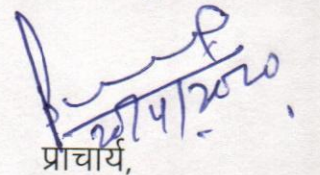 20/4/2020
प्राचार्य,